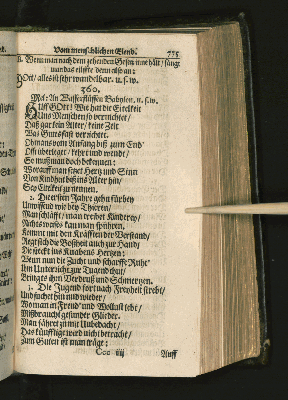 Vom menschlichen Elend. 775
Wenn man nach dem zehenden Gesetz inne hält / fängt
man das eilffte denn also an:
Gott / alles ist sehr wandelbar. u. s. w.
360.
Mel: An Wasserflüssen Babylon, u. s. w.
Hilff Gott! Wie hat die Eitelkeit
Uns Menschen so vernichtet /
Daß gar kein Alter / keine Zeit
Was Gutes fast verrichtet.
Ob mans vom Anfang biß zum End
Offt überleget / kehrt und wendt /
So muß man doch bekennen:
Worauff man seßet Hertz und Sinn
Von Kindheit biß ins Alter hin /
Sey Eitelkeit zu nennen.
2. Die ersten Jahre gehn fürbey
Unwissend wie bey Thieren /
Man schläfft / man treibet Kinderey /
Nichts warhs kan man spühren.
Kommt mit den Kräfften der Verstand /
Regt sich die Bosheit auch zur Hand /
Die steckt ins Knabens Hertzen:
Wenn nun die Zucht und scharffe Ruht
Ihn Unterricht zur Tugend thut /
Bringt es ihm Verdruß und Schmertzen.
3. Die Jugend fort nach Freyheit strebt /
Und suchet hin und wieder /
Wo man in Freud und Wollust lebt /
Mißbraucht gesunder Glieder.
Man fähret zu mit Unbedacht /
Das künfftige wird nicht betracht /
Zum Guten ist man träge:
Ccc iiij Auff